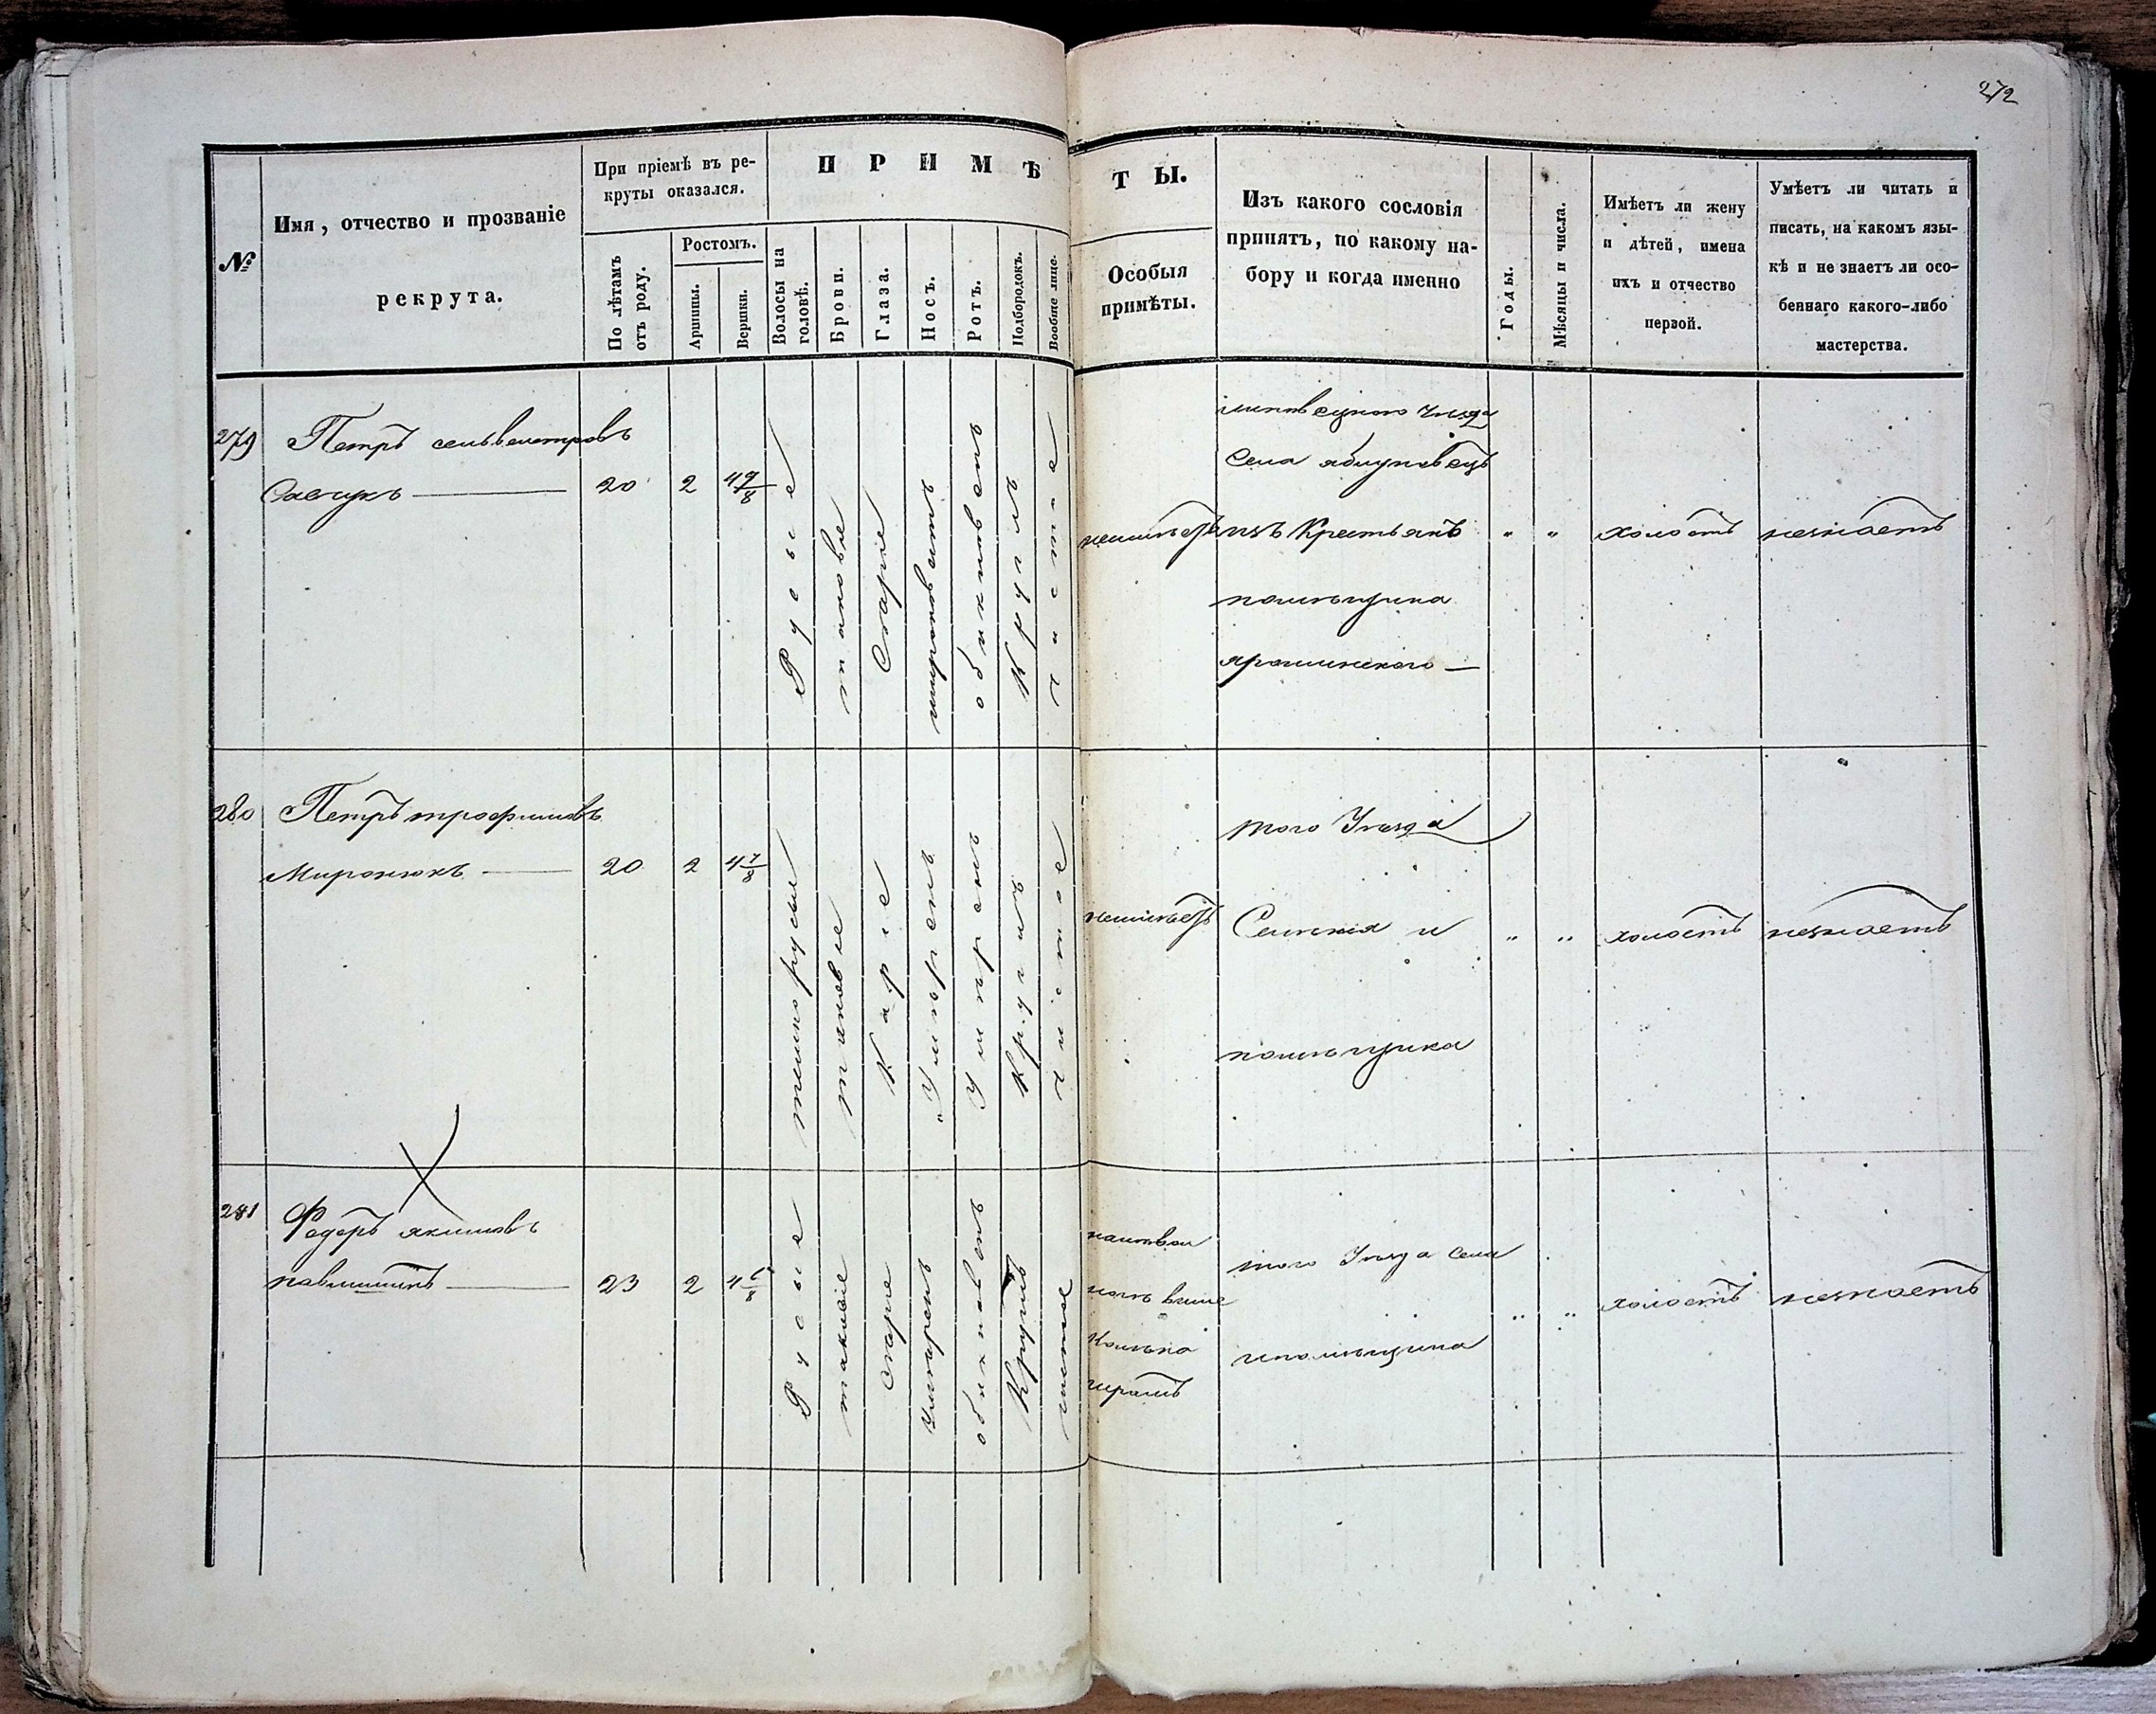 272
№
Имя, отчество и прозваніе
рекрута.
При пріемѣ въ ре-
круты оказался.
По лѣтамъ
отъ роду.
Ростомъ.
Аршины.
Вершки.
ПРИМѢ
Волосы на
головѣ.
Брови.
Глаза.
Носъ.
Ротъ.
Подбородокъ.
Вообще лице.
ТЫ.
Особыя
примѣты.
Изъ какого сословія
принятъ, по какому на-
бору и когда именно
Годы.
Мѣсяцы и числа.
Имѣетъ ли жену
и дѣтей, имена
ихъ и отчество
первой.
Умѣетъ ли читать и
писать, на какомъ язы-
кѣ и не знаетъ ли осо-
беннаго какого-либо
мастерства.
279
Петръ сельвестровъ
Савчукъ
20
2
4 9/8
Русые
таковые
Старіе
широковатъ
обикновенъ
Круглъ
чистое
неимѣетъ
уезда
Села яблуновецъ
изъ Крестьянъ
помѣщика
ярошинского
" "
холостъ
незнаетъ
280
Петръ трофимовъ
Миронюкъ
20
2
4 7/8
темнорусые
таковые
Каріе
Умѣренъ
Умѣренъ
Круглъ
чистое
неимѣетъ
того Уезда
Села и
помѣщика
" "
холостъ
незнаетъ
281
Федоръ якимовъ
павлишинъ
23
2
4 6/8
Русые
такиые
Старіе
Умѣренъ
обикновенъ
Круглъ
чистое
налѣвой
ногѣ выше
Колѣна
шрамъ
того Уезда села
ипомѣщика
" "
холостъ
незнаетъ